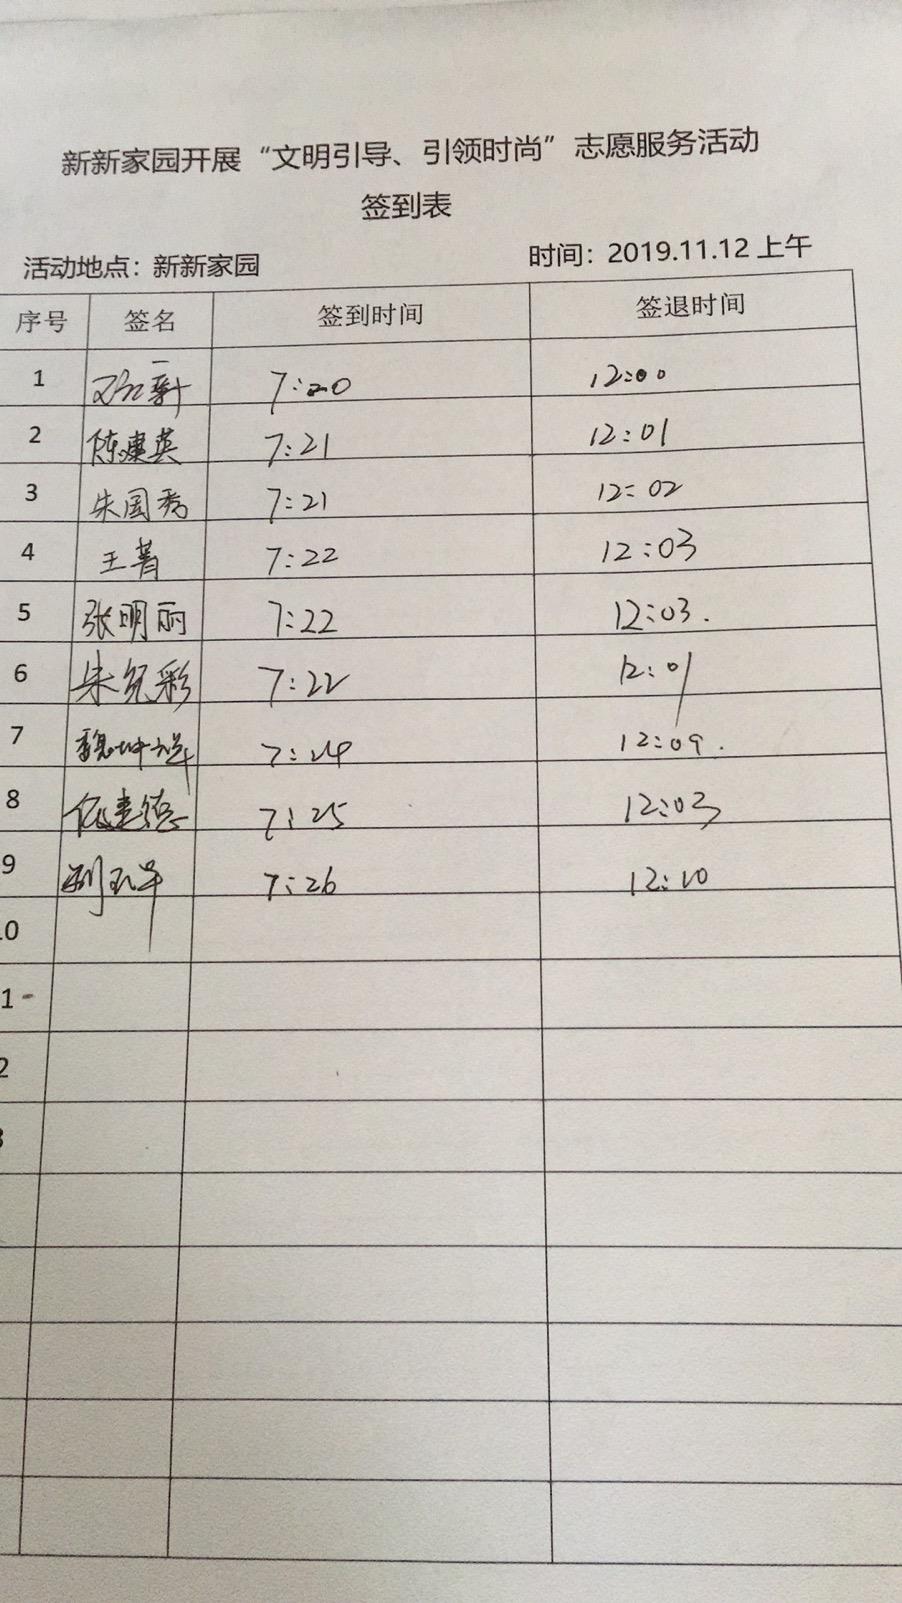 新新家园开展“文明引导、引领时尚”志愿服务活动
签到表
活动地点：新新家园 时间：2019.11.12上午
序号 签名 签到时间 签退时间
1 7:20 12:00
2 陈建英 7:21 12:01
3 朱国秀 7:21 12:02
4 王菁 7:22 12:03
5 张明丽 7:22 12:03.
6 朱纪彩 7:22 12:01
7 7:24 12:09.
8 伍建德 7:25 12:03
9 7:26 12:10
.0
1 -
2
3